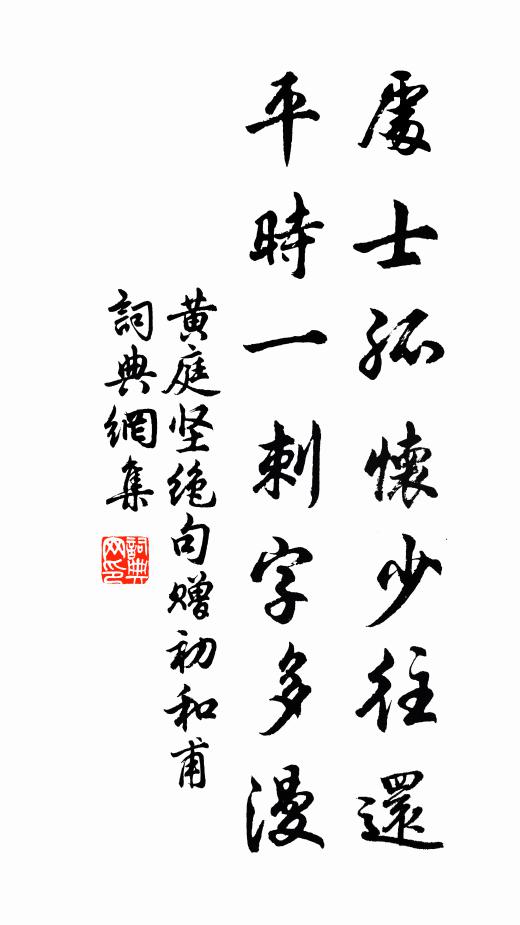 處士孤懷少往還
平時一刺字多漫
黄庭坚绝句赠初和甫
詞典網集
詞典网印